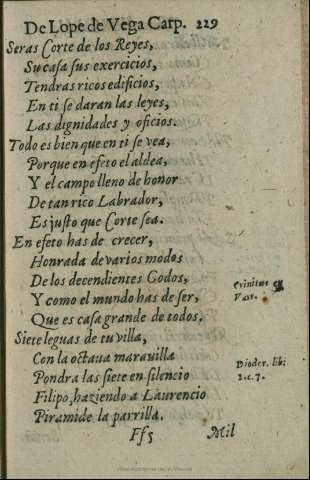 De Lope de Vega Carp. 229
Seras Corte de los Reyes,
Su casa sus exercicios,
Tendras ricos edificios,
En ti se daran las leyes,
Las dignidades y oficios.
Todo es bien que en ti se vea,
Porque en efeto el aldea,
Y el campo lleno de honor
De tan rico Labrador,
Es justo que Corte sea.
En efeto has de crecer,
Honrada de varios modos
De los decendientes Godos,
Y como el mundo has de ser,
Que es casa grande de todos.
Siete leguas de tu villa,
Con la octaua marauilla
Pondra las siete en silencio
Filipo, haziendo a Laurencio
Piramide la parrilla.
Ff5 Mil
Crinitus
Varr.
Diodor. lib.
2. c. 7.